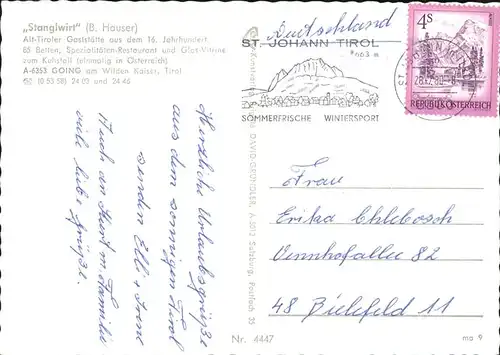 „Stanglwirt" (B. Hauser)
Alt-Tiroler Gaststätte aus dem 16. Jahrhundert
65 Betten, Spezialitäten-Restaurant und Glas-Vitrine
zum Kuhstall (einmalig in Österreich)
A-6353 GOING am Wilden Kaiser, Tirol
(0 53 58) 24 03 und 24 46
Herzliche Urlaubsgrüße
aus dem sonnigen Tirol
senden Elli + Irene
Auch an Kurt m. Familie
viele liebe Grüße.
DAVID-GRÜNDLER A 5013 Salzburg, Postfach 35
Deutschland
ST. JOHANN TIROL
663 m
SOMMERFRISCHE WINTERSPORT
4S
REPUBLIK ÖSTERREICH
Frau
Erika Chlebosch
Vennhofallee 82
48 Bielefeld 11
Nr. 4447
ma 9